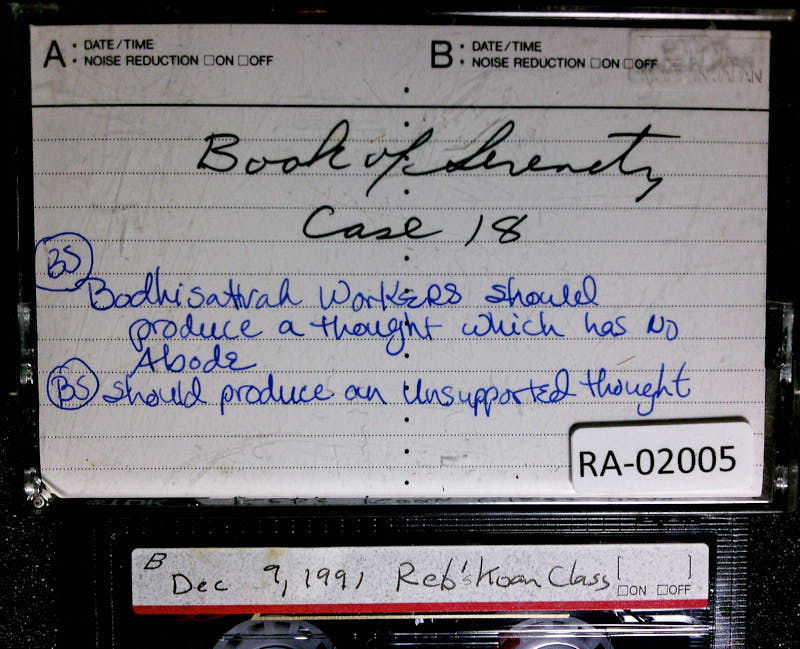 A • DATE/TIME
• NOISE REDUCTION □ON □OFF
B • DATE/TIME
• NOISE REDUCTION □ON □OFF
Book of Serenity
Case 18
BS
Bodhisattvah Workers should
produce a thought which has No
Abode
BS should produce an Unsupported thought
RA-02005
B
Dec 9, 1991 Reb's Koan Class [ ]
□ON □OFF